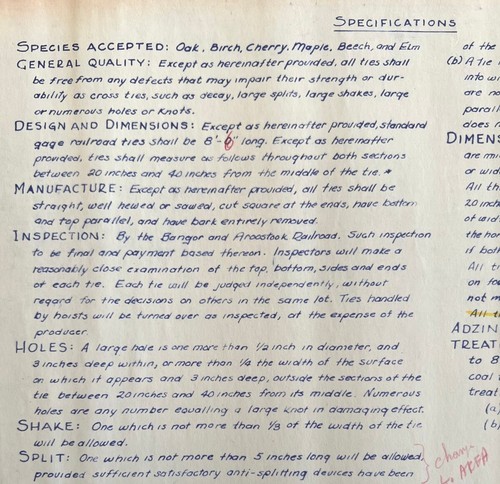 SPECIFICATIONS
SPECIES ACCEPTED: Oak, Birch, Cherry, Maple, Beech, and Elm
GENERAL QUALITY: Except as hereinafter provided, all ties shall
be free from any defects that may impair their strength or dur-
ability as cross ties, such as decay, large splits, large shakes, large
or numerous holes or knots.
DESIGN AND DIMENSIONS: Except as hereinafter provided, standard
gage railroad ties shall be 8'-6" long. Except as hereinafter
provided, ties shall measure as follows throughout both sections
between 20 inches and 40 inches from the middle of the tie. *
MANUFACTURE: Except as hereinafter provided, all ties shall be
straight, well hewed or sawed, cut square at the ends, have bottom
and top parallel, and have bark entirely removed.
INSPECTION: By the Bangor and Aroostook Railroad. Such inspection
to be final and payment based thereon. Inspectors will make a
reasonably close examination of the top, bottom, sides and ends
of each tie. Each tie will be judged independently, without
regard for the decisions on others in the same lot. Ties handled
by hoists will be turned over as inspected, at the expense of the
producer.
HOLES: A large hole is one more than 1/2 inch in diameter, and
3 inches deep within, or more than 1/4 the width of the surface
on which it appears and 3 inches deep, outside the sections of the
tie between 20 inches and 40 inches from its middle. Numerous
holes are any number equalling a large knot in damaging effect.
SHAKE: One which is not more than 1/3 of the width of the tie
will be allowed.
SPLIT: One which is not more than 5 inches long will be allowed,
provided sufficient satisfactory anti-splitting devices have been
of the
(b) A tie
into w
are no
paral
does n
DIMENS
are mi
or wid
All th
20 inch
of wid
the hor
if both
All ti
on fo
not m
All t
ADZIN
TREAT
to 8
coal
treat
(a)
(b)
chang
to AREA